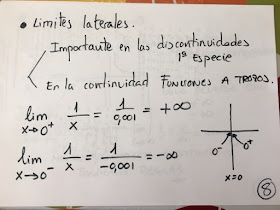 • Limites laterales.
Importante en las discontinuidades
1ª Especie
En la continuidad FUNCIONES A TROZOS.
lim x→0⁺ 1/x = 1/0,001 = +∞
lim x→0⁻ 1/x = 1/-0,001 = -∞
0⁻ 0⁺
x=0
8